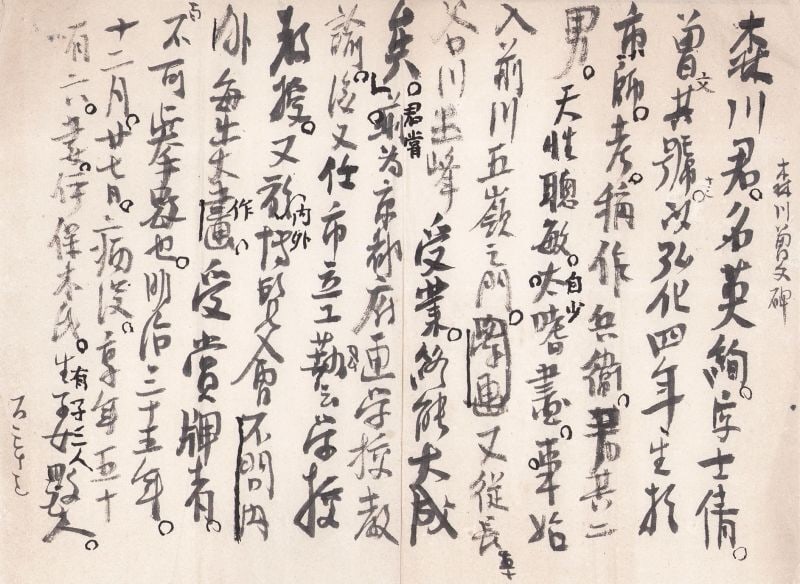 森川曽文碑
森川君。名英絢。字士倩。
曽文其號。以弘化四年生於
京師。考稱作兵衞。君其二
男。天性聰敏。自少嗜畫。事始
入前川五嶺之門。學画又從長
谷川玉峰受業。終能大成
矣。君嘗前為京都府画学校教
諭。後又任市立工藝学校
教授。又於内外博覧會不問内
外每出大作畫。受賞牌者。
不可擧數也。明治三十五年。
十二月。廿七日。病没。享年五十
有六。妻。伊保木氏。生有子三人女數人。